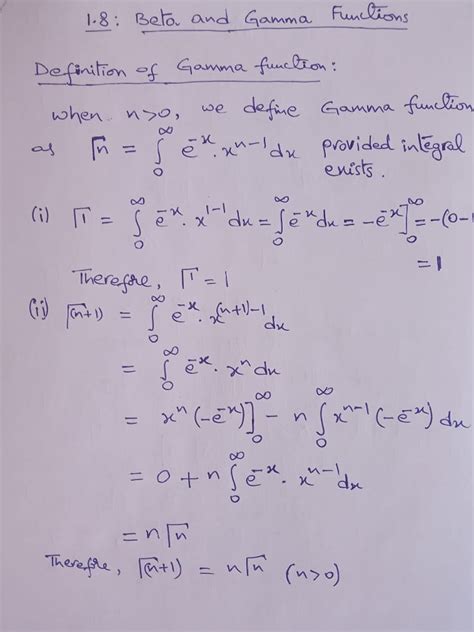 1.8: Beta and Gamma Functions
Definition of Gamma function:
when n>0, we define Gamma function
as Γn = ∫₀^∞ e^-x . x^n-1 dx provided integral
exists.
(i) Γ1 = ∫₀^∞ e^-x . x^1-1 dx = ∫₀^∞ e^-x dx = -e^-x]₀^∞ = -(0-1
= 1
Therefore, Γ1 = 1
(ii) Γ(n+1) = ∫₀^∞ e^-x . x^(n+1)-1 dx
= ∫₀^∞ e^-x . x^n dx
= x^n (-e^-x)]₀^∞ - n ∫₀^∞ x^n-1 (-e^-x) dx
= 0 + n ∫₀^∞ e^-x . x^n-1 dx
= n Γn
Therefre, Γ(n+1) = n Γn (n>0)